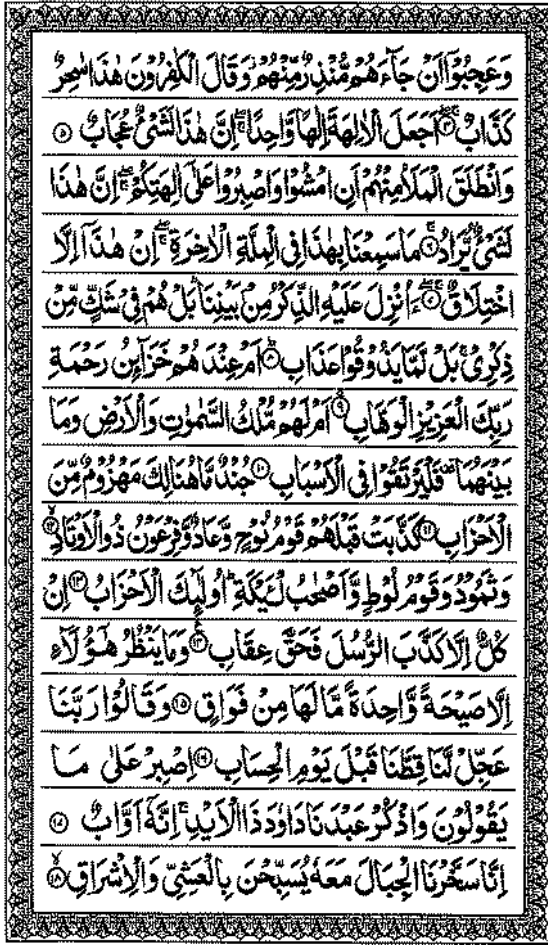 وَعَجِبُوْۤا اَنْ جَآءَهُمْ مُّنْذِرٌ مِّنْهُمْ ؗ وَقَالَ الْكٰفِرُوْنَ هٰذَا سٰحِرٌ
كَذَّابٌ ۖۚ۝۴ اَجَعَلَ الْاٰلِهَةَ اِلٰهًا وَّاحِدًا ۖۚ اِنَّ هٰذَا لَشَیْءٌ عُجَابٌ ۝۵
وَانْطَلَقَ الْمَلَاُ مِنْهُمْ اَنِ امْشُوْا وَاصْبِرُوْا عَلٰۤی اٰلِهَتِكُمْ ۖۚ اِنَّ هٰذَا
لَشَیْءٌ یُّرَادُ ۖۚ۝۶ مَا سَمِعْنَا بِهٰذَا فِی الْمِلَّةِ الْاٰخِرَةِ ۖۚ اِنْ هٰذَاۤ اِلَّا
اخْتِلَاقٌ ۖۚ۝۷ ءَاُنْزِلَ عَلَیْهِ الذِّكْرُ مِنْۢ بَیْنِنَا ؕ بَلْ هُمْ فِیْ شَكٍّ مِّنْ
ذِكْرِیْ ۚ بَلْ لَّمَّا یَذُوْقُوْا عَذَابِ ؕ۝۸ اَمْ عِنْدَهُمْ خَزَآىِٕنُ رَحْمَةِ
رَبِّكَ الْعَزِیْزِ الْوَهَّابِ ۚ۝۹ اَمْ لَهُمْ مُّلْكُ السَّمٰوٰتِ وَالْاَرْضِ وَمَا
بَیْنَهُمَا ۫ فَلْیَرْتَقُوْا فِی الْاَسْبَابِ ۝۱۰ جُنْدٌ مَّا هُنَالِكَ مَهْزُوْمٌ مِّنَ
الْاَحْزَابِ ۝۱۱ كَذَّبَتْ قَبْلَهُمْ قَوْمُ نُوْحٍ وَّعَادٌ وَّفِرْعَوْنُ ذُو الْاَوْتَادِ ۙ۝۱۲
وَثَمُوْدُ وَقَوْمُ لُوْطٍ وَّاَصْحٰبُ لْـَٔیْكَةِ ؕ اُولٰٓىِٕكَ الْاَحْزَابُ ۝۱۳ اِنْ
كُلٌّ اِلَّا كَذَّبَ الرُّسُلَ فَحَقَّ عِقَابِ ۝۱۴ وَمَا یَنْظُرُ هٰۤؤُلَآءِ
اِلَّا صَیْحَةً وَّاحِدَةً مَّا لَهَا مِنْ فَوَاقٍ ۝۱۵ وَقَالُوْا رَبَّنَا
عَجِّلْ لَّنَا قِطَّنَا قَبْلَ یَوْمِ الْحِسَابِ ۝۱۶ اِصْبِرْ عَلٰی مَا
یَقُوْلُوْنَ وَاذْكُرْ عَبْدَنَا دَاوٗدَ ذَا الْاَیْدِ ۚ اِنَّهٗۤ اَوَّابٌ ۝۱۷
اِنَّا سَخَّرْنَا الْجِبَالَ مَعَهٗ یُسَبِّحْنَ بِالْعَشِیِّ وَالْاِشْرَاقِ ۙ۝۱۸